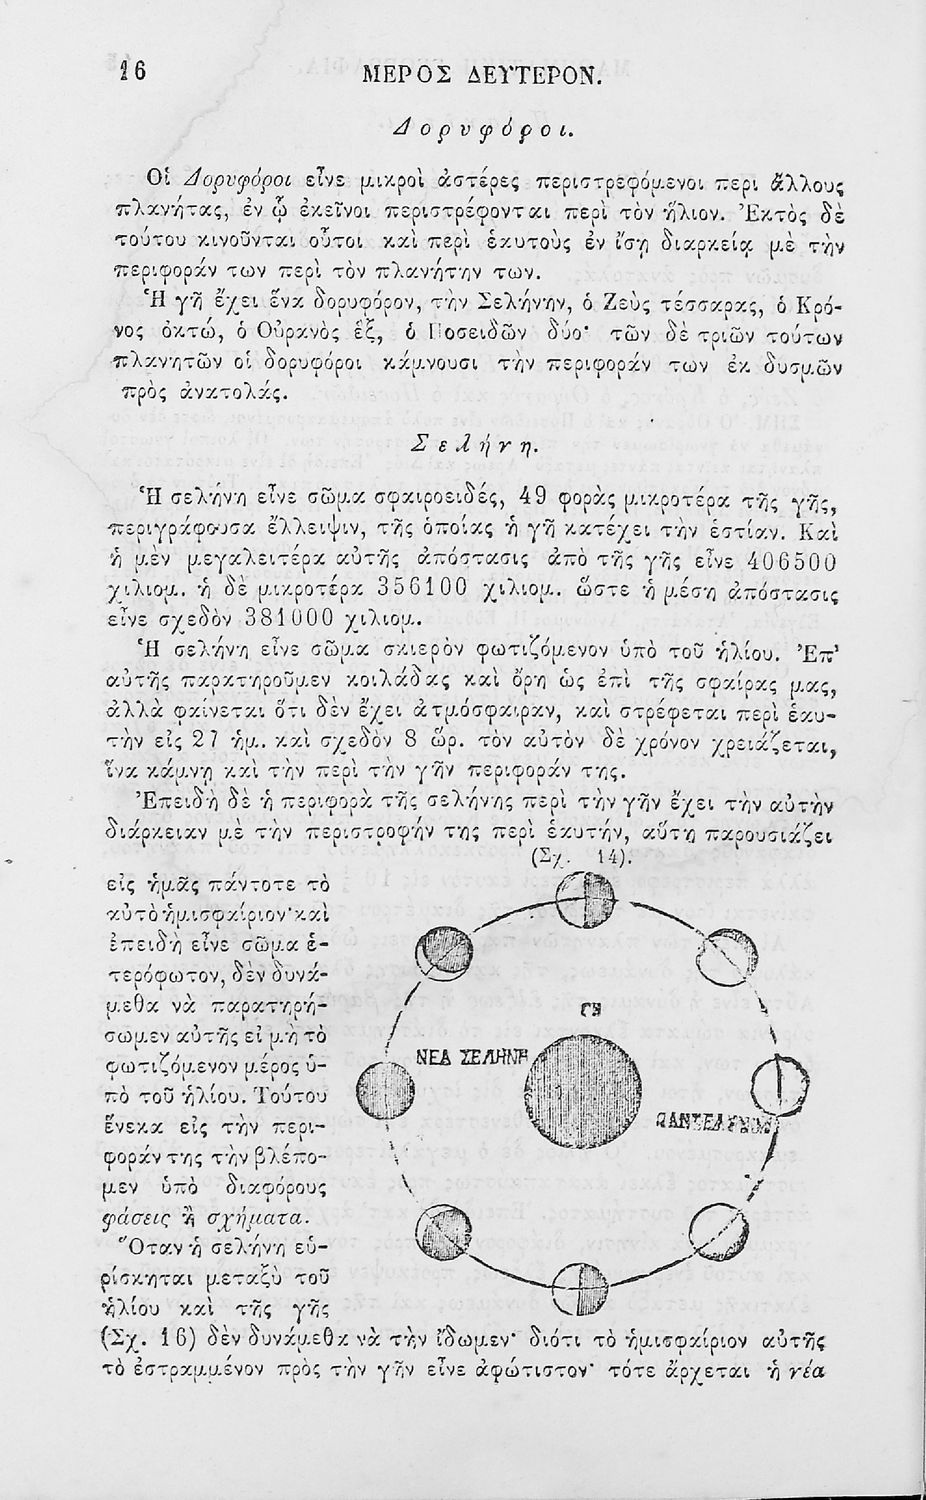 16 ΜΕΡΟΣ ΔΕΥΤΕΡΟΝ.
Δορυφόροι.
Οἱ Δορυφόροι εἶνε μικροὶ ἀστέρες περιστρεφόμενοι περι ἄλλους
πλανήτας, ἐν ᾧ ἐκεῖνοι περιστρέφονται περὶ τὸν ἥλιον. Ἐκτὸς δὲ
τούτου κινοῦνται οὗτοι καὶ περὶ ἑαυτοὺς ἐν ἴσῃ διαρκείᾳ μὲ τὴν
περιφοράν των περὶ τὸν πλανήτην των.
Ἡ γῆ ἔχει ἕνα δορυφόρον, τὴν Σελήνην, ὁ Ζεὺς τέσσαρας, ὁ Κρό-
νος ὀκτώ, ὁ Οὐρανὸς ἓξ, ὁ Ποσειδῶν δύο· τῶν δὲ τριῶν τούτων
πλανητῶν οἱ δορυφόροι κάμνουσι τὴν περιφοράν των ἐκ δυσμῶν
πρὸς ἀνατολάς.
Σελήνη.
Ἡ σελήνη εἶνε σῶμα σφαιροειδές, 49 φορὰς μικροτέρα τῆς γῆς,
περιγράφουσα ἔλλειψιν, τῆς ὁποίας ἡ γῆ κατέχει τὴν ἑστίαν. Καὶ
ἡ μὲν μεγαλειτέρα αὐτῆς ἀπόστασις ἀπὸ τῆς γῆς εἶνε 406500
χιλιομ. ἡ δὲ μικροτέρα 356100 χιλιομ. ὥστε ἡ μέση ἀπόστασις
εἶνε σχεδὸν 381000 χιλιομ.
Ἡ σελήνη εἶνε σῶμα σκιερὸν φωτιζόμενον ὑπὸ τοῦ ἡλίου. Ἐπ'
αὐτῆς παρατηροῦμεν κοιλάδας καὶ ὄρη ὡς ἐπὶ τῆς σφαίρας μας,
ἀλλὰ φαίνεται ὅτι δὲν ἔχει ἀτμόσφαιραν, καὶ στρέφεται περὶ ἑαυ-
τὴν εἰς 27 ἡμ. καὶ σχεδὸν 8 ὥρ. τὸν αὐτὸν δὲ χρόνον χρειάζεται,
ἵνα κάμνῃ καὶ τὴν περὶ τὴν γῆν περιφοράν της.
Ἐπειδὴ δὲ ἡ περιφορὰ τῆς σελήνης περὶ τὴν γῆν ἔχει τὴν αὐτὴν
διάρκειαν μὲ τὴν περιστροφήν της περὶ ἑαυτήν, αὕτη παρουσιάζει
(Σχ. 14).
εἰς ἡμᾶς πάντοτε τὸ
αὐτὸ ἡμισφαίριον· καὶ
ἐπειδὴ εἶνε σῶμα ἑ-
τερόφωτον, δὲν δυνά-
μεθα νὰ παρατηρή-
σωμεν αὐτῆς εἰ μὴ τὸ
φωτιζόμενον μέρος ὑ-
πὸ τοῦ ἡλίου. Τούτου
ἕνεκα εἰς τὴν περι-
φοράν της τὴν βλέπο-
μεν ὑπὸ διαφόρους
φάσεις ἢ σχήματα.
Ὅταν ἡ σελήνη εὑ-
ρίσκηται μεταξὺ τοῦ
ἡλίου καὶ τῆς γῆς
ΓΗ
ΝΕΑ ΣΕΛΗΝΗ
ΠΑΝΣΕΛΗΝΟΣ
(Σχ. 16) δὲν δυνάμεθα νὰ τὴν ἴδωμεν· διότι τὸ ἡμισφαίριον αὐτῆς
τὸ ἐστραμμένον πρὸς τὴν γῆν εἶνε ἀφώτιστον· τότε ἄρχεται ἡ νέα